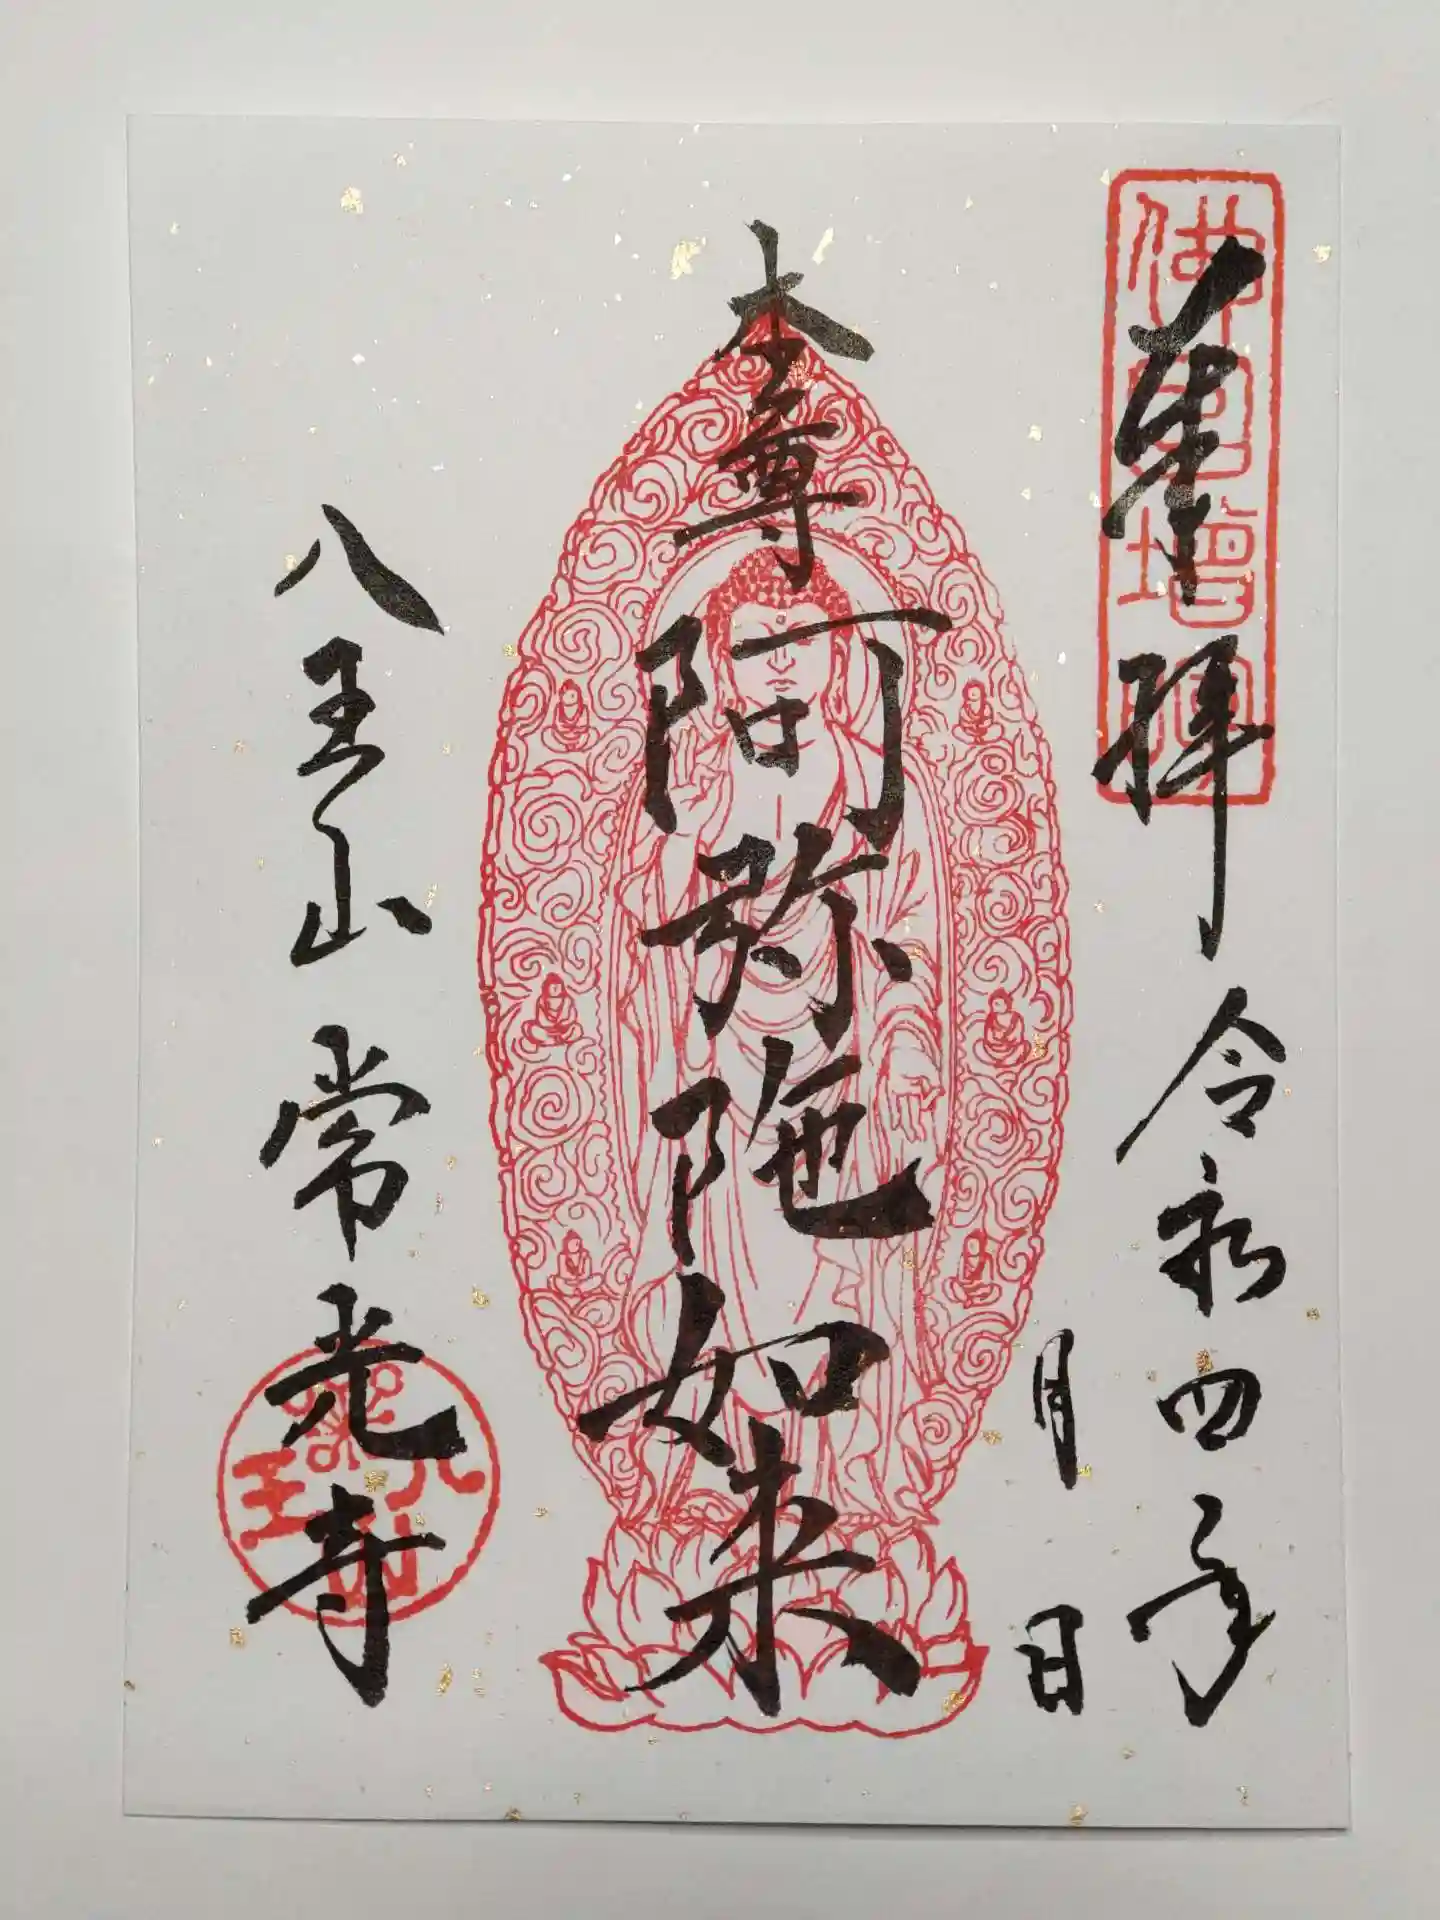 佛日増輝
奉拝 令和四年
月 日
本尊 阿弥陀如来
八王山 常光寺
八王山